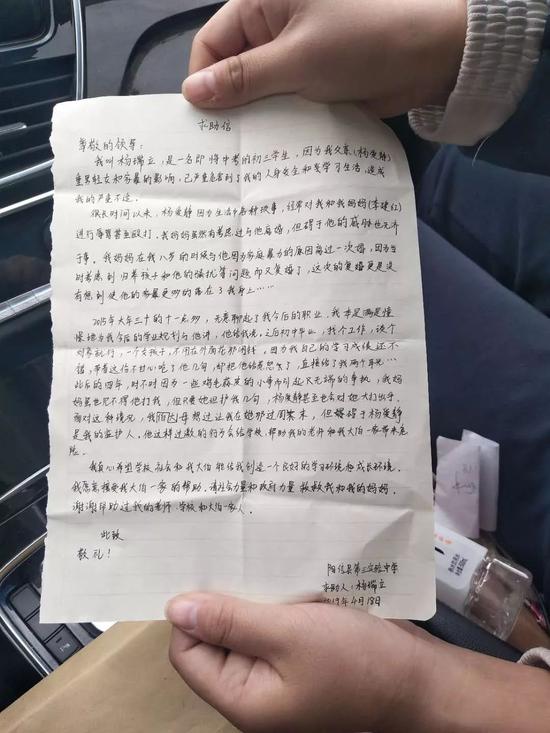 求助信
尊敬的领导:
我叫杨瑞立,是一名即将中考的初三学生,因为我父亲(杨爱静)
重男轻女和家暴的影响,已严重危害到了我的人身安全和我学习生活,造成
我的严重不适。
很长时间以来,杨爱静因为生活中各种琐事,经常对我和我妈妈(李建红)
进行辱骂甚至殴打。我妈妈虽然有考虑过与他离婚,但碍于他的威胁也无济
于事。我妈妈在我八岁的时候与他因为家庭暴力的原因离过一次婚,因为当
时考虑到归养孩子和他的骚扰等问题而又复婚了,这次的复婚更是没
有想到使他的家暴更多的落在了我身上……
2015年大年三十的十一点多,无意聊起了我今后的职业,我本是满是憧
憬地为我今后的学业规划与他讲,他给我说,之后初中毕业,找个工作,谈个
对象就行,一个女孩子,不用在外面花那闲钱,因为我自己的学习成绩还不
错,带着这份不甘心吃了他几句,却把他给惹怒了,直接给了我两个耳光…
此后的四年,时不时因为一些鸡毛蒜皮的小事而引起又无端的争执,我妈
妈虽也见不得他打我,但只要她但护我几句,杨爱静甚至也会对她大打出手。
面对这种情况,我伯父母想过让我在她那过周末,但碍于杨爱静
是我的监护人,他这种过激的行为会给学校,帮助我的老师和我大伯一家带来危
险。
我真心希望学校社会和我大伯能给我创造一个良好的学习环境和成长环境。
我愿意接受我大伯一家的帮助。请社会力量和政府力量救救我和我的妈妈。
谢谢帮助过我的老师、学校和大伯一家人。
此致
敬礼!
阳信县第三实验中学
求助人:杨瑞立
2019年4月18日